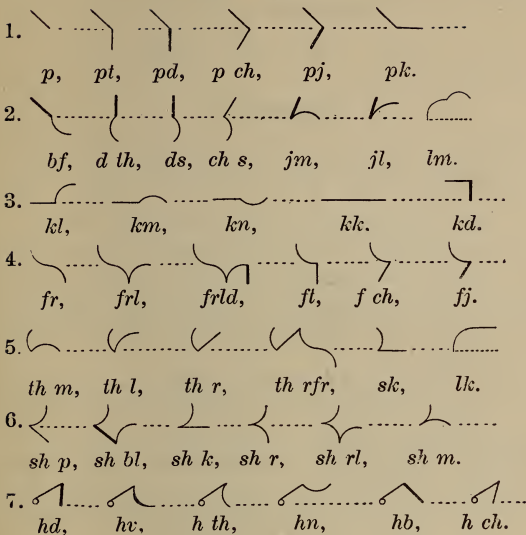 1.
p, pt, pd, p ch, pj, pk.
2.
bf, d th, ds, ch s, jm, jl, lm.
3.
kl, km, kn, kk. kd.
4.
fr, frl, frld, ft, f ch, fj.
5.
th m, th l, th r, th rfr, sk, lk.
6.
sh p, sh bl, sh k, sh r, sh rl, sh m.
7.
hd, hv, h th, hn, hb, h ch.